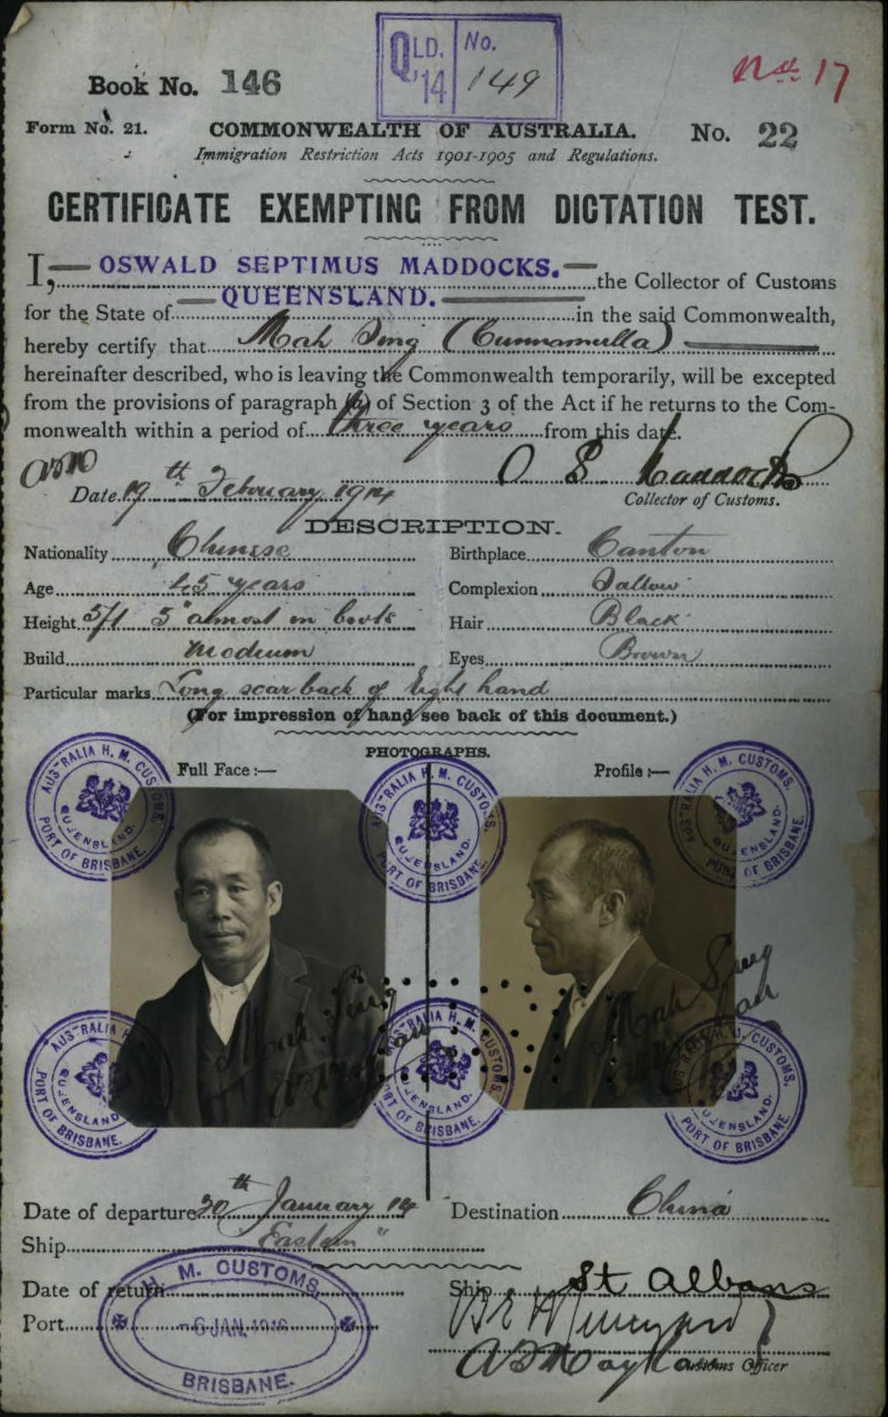 QLD. No.
'14 149
No. 17
Book No. 146
Form No. 21. COMMONWEALTH OF AUSTRALIA. No. 22
Immigration Restriction Acts 1901-1905 and Regulations.
CERTIFICATE EXEMPTING FROM DICTATION TEST.
I, OSWALD SEPTIMUS MADDOCKS. the Collector of Customs
for the State of QUEENSLAND. in the said Commonwealth,
hereby certify that Mah Sing (Cunnamulla)
hereinafter described, who is leaving the Commonwealth temporarily, will be excepted
from the provisions of paragraph (a) of Section 3 of the Act if he returns to the Com-
monwealth within a period of three years from this date.
O S Maddocks
Date 19th February 1914 Collector of Customs.
DESCRIPTION.
Nationality Chinese Birthplace Canton
Age 45 years Complexion Sallow
Height 5ft 5" almost in boots Hair Black
Build Medium Eyes Brown
Particular marks Long scar back of right hand
(For impression of hand see back of this document.)
PHOTOGRAPHS.
Full Face :— Profile :—
AUSTRALIA H. M. CUSTOMS. QUEENSLAND. PORT OF BRISBANE.
AUSTRALIA H. M. CUSTOMS. QUEENSLAND. PORT OF BRISBANE.
AUSTRALIA H. M. CUSTOMS. QUEENSLAND. PORT OF BRISBANE.
Mah Sing
Mah Sing
AUSTRALIA H. M. CUSTOMS. QUEENSLAND. PORT OF BRISBANE.
AUSTRALIA H. M. CUSTOMS. QUEENSLAND. PORT OF BRISBANE.
AUSTRALIA H. M. CUSTOMS. QUEENSLAND. PORT OF BRISBANE.
Date of departure 30th January 14 Destination China
Ship Eastern "
Date of return Ship St Albans
Port
H. M. CUSTOMS
-6 JAN. 1916
BRISBANE.
Customs Officer